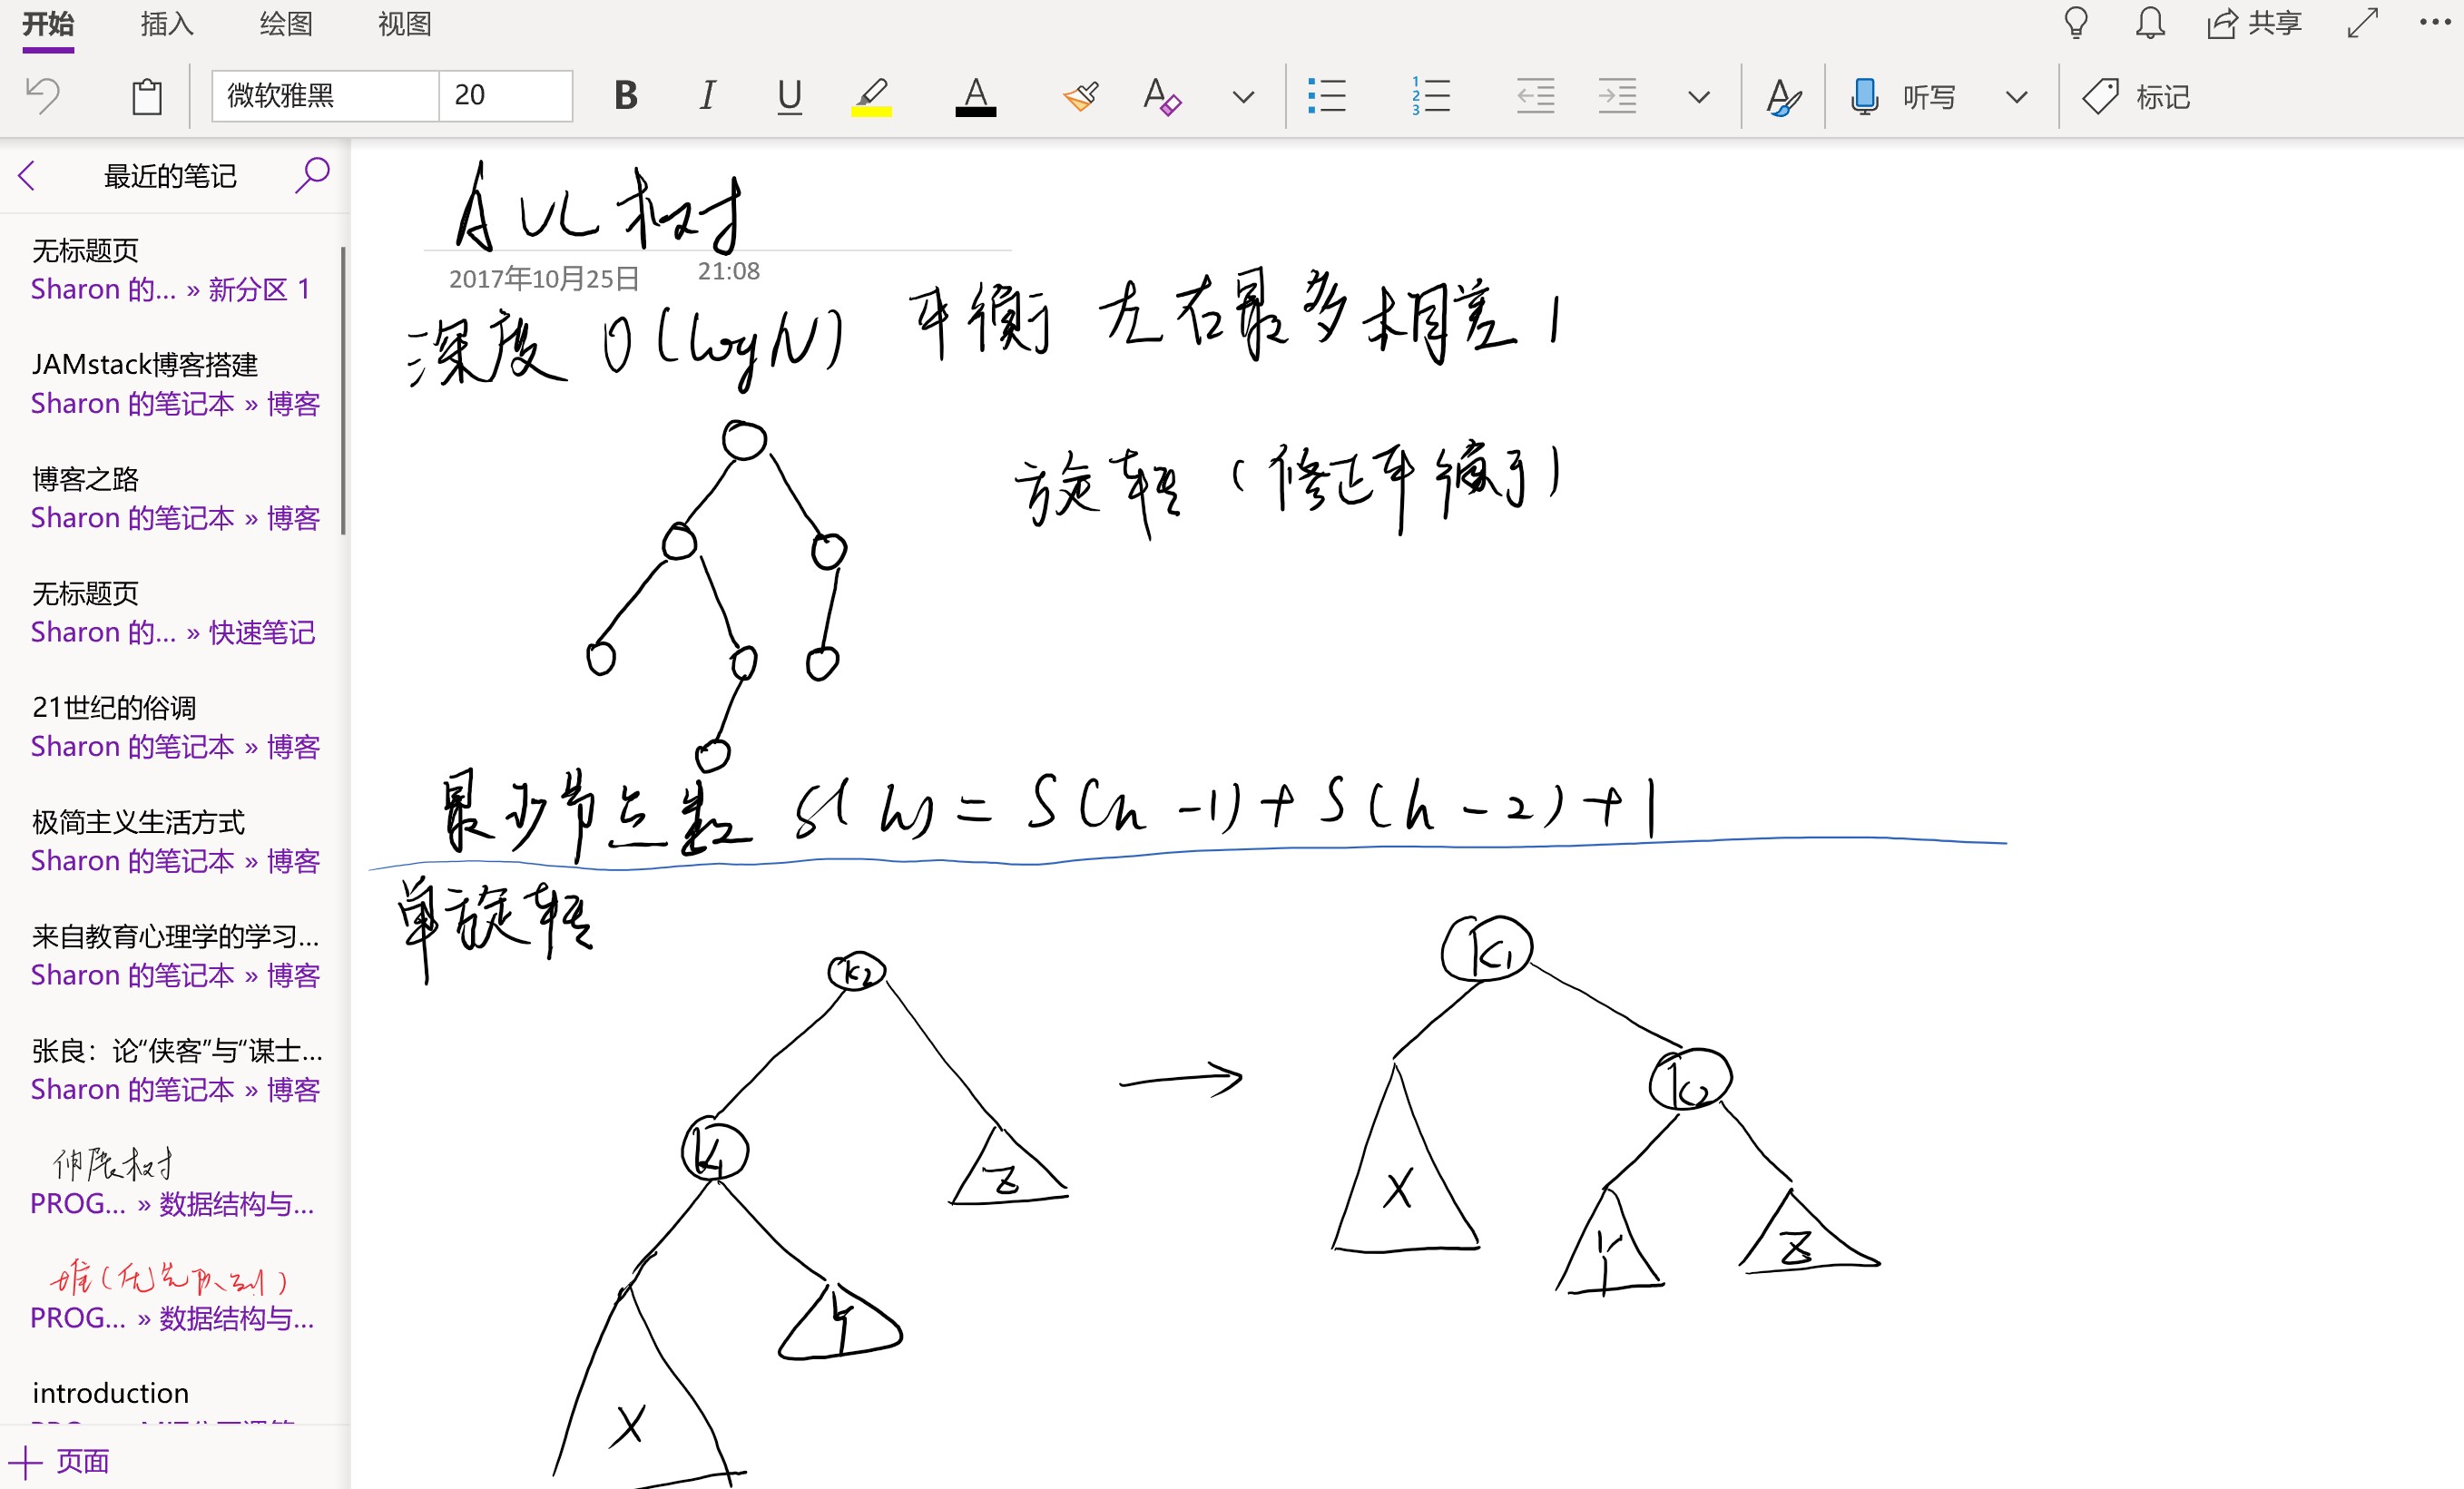 开始 插入 绘图 视图 共享
微软雅黑 20 B I U A A 听写 标记
最近的笔记
无标题页
Sharon 的... » 新分区 1
JAMstack博客搭建
Sharon 的笔记本 » 博客
博客之路
Sharon 的笔记本 » 博客
无标题页
Sharon 的... » 快速笔记
21世纪的俗调
Sharon 的笔记本 » 博客
极简主义生活方式
Sharon 的笔记本 » 博客
来自教育心理学的学习...
Sharon 的笔记本 » 博客
张良：论“侠客”与“谋士...
Sharon 的笔记本 » 博客
伸展树
PROG... » 数据结构与...
堆(优先队列)
PROG... » 数据结构与...
introduction
页面
AVL树
2017年10月25日 21:08
深度 O(logN) 平衡 左右最多相差1
旋转(修正平衡)
最少节点数 S(h) = S(h-1)+S(h-2)+1
单旋转
k2
k1
Z
Y
X
k1
k2
X
Y
Z